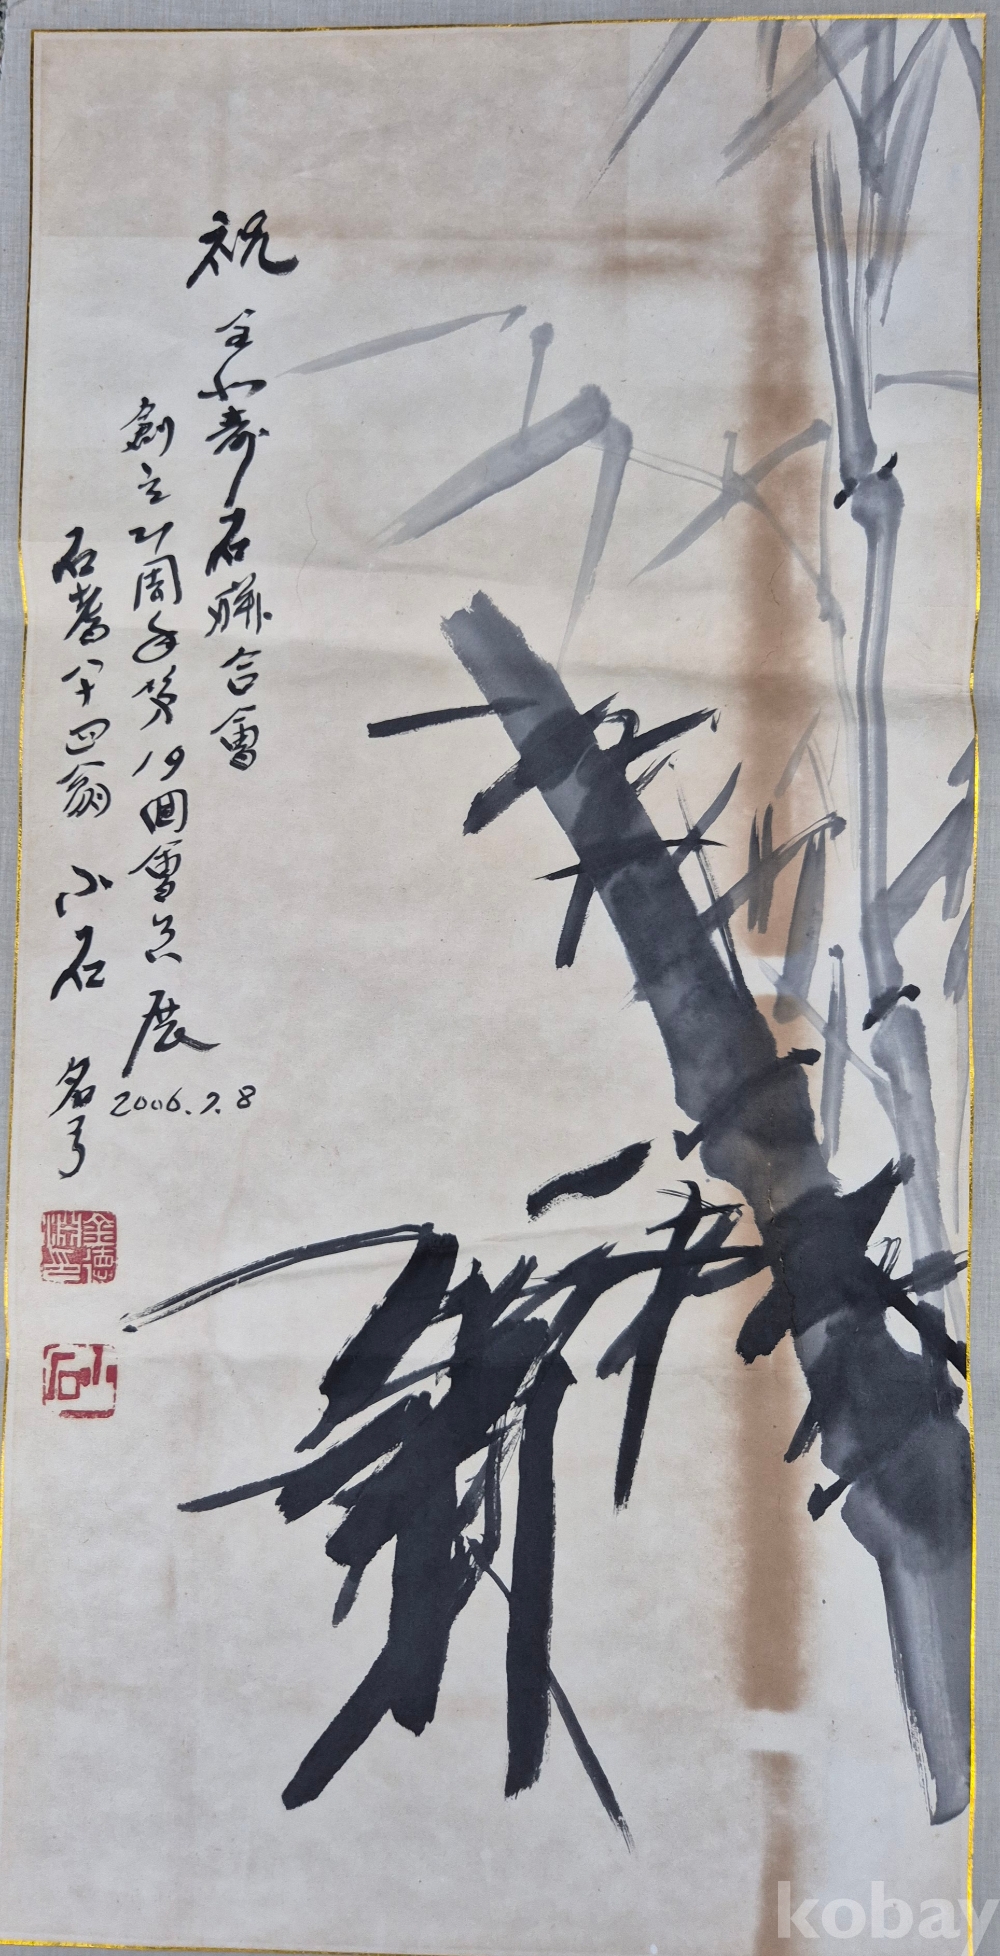 祝 全北壽石聯合會
創立21周年第19回會員展
2006.7.8
石耆八十四翁 小石
小石
kobay